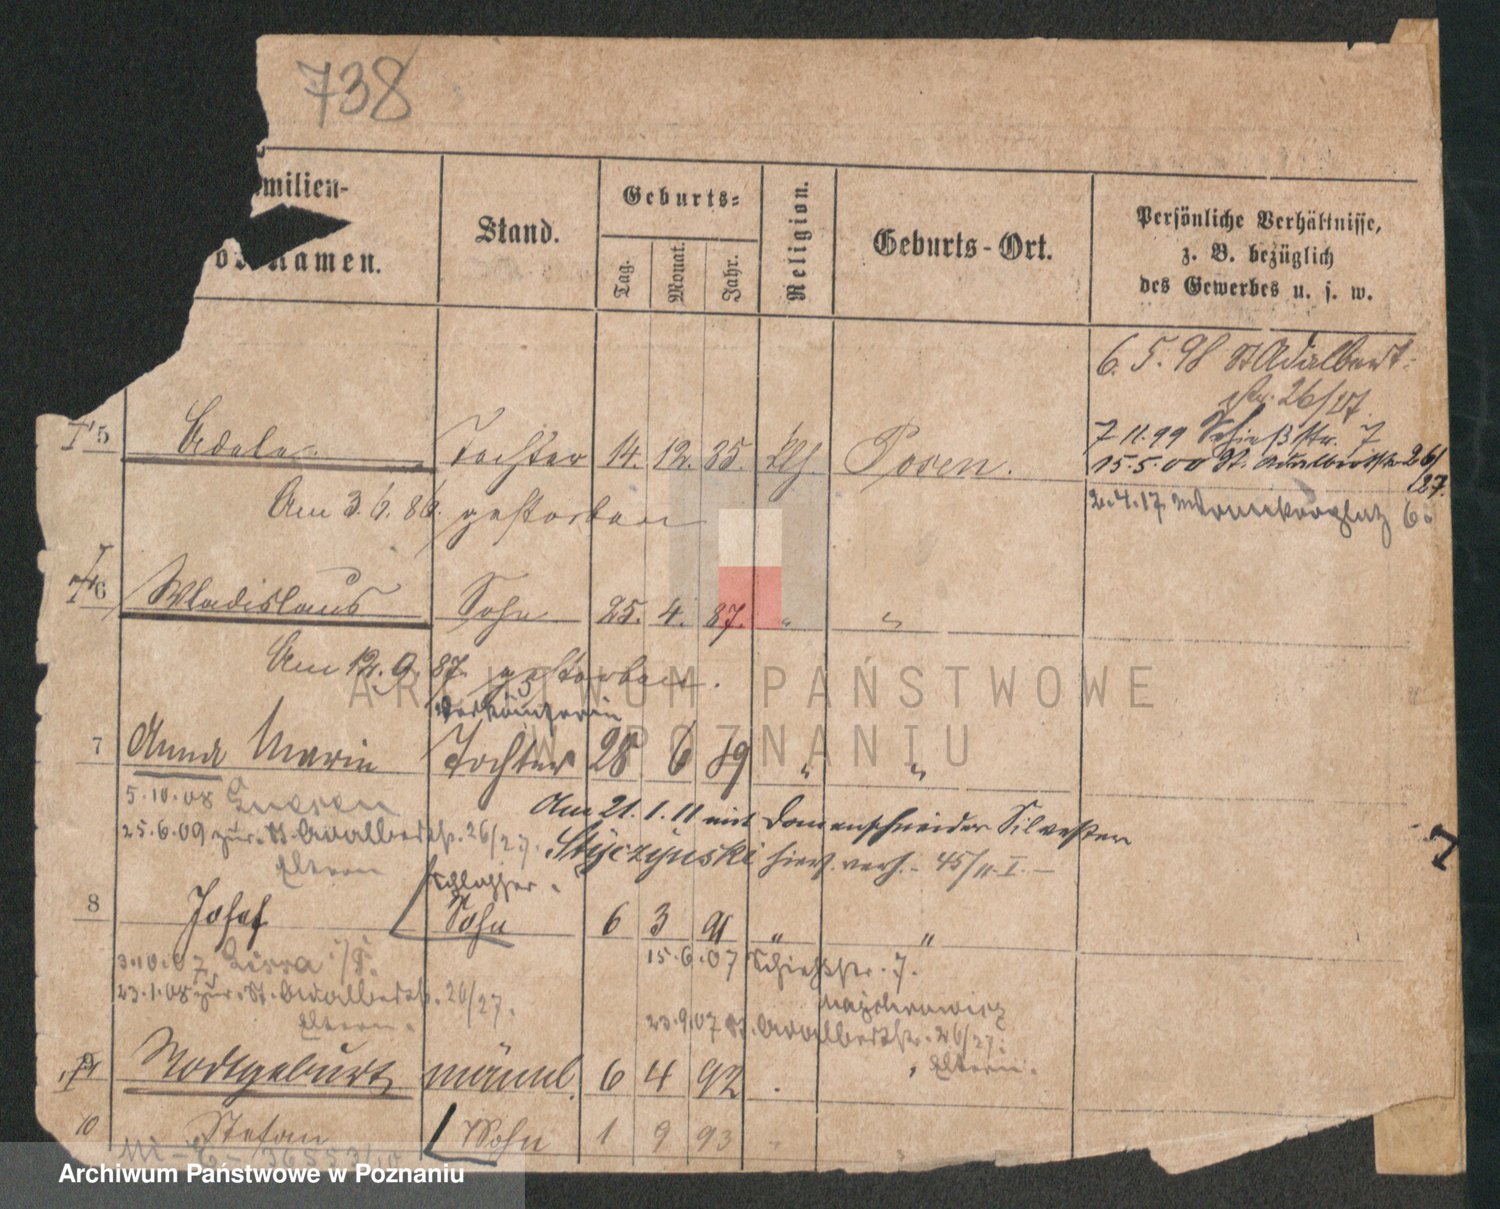 738
milien-
Stand.
Geburts:
Tag.
Monat.
Jahr.
Religion.
Geburts-Ort.
Persönliche Verhältnisse,
z. B. bezüglich
des Gewerbes u. s. w.
namen.
6. 5. 98 St Adalbert-
str. 26/27.
5 Adela Tochter 14. 12. 85. Posen.
7 11. 99 Schießstr. 7
15. 5. 00 St. Adalbertstr 26/
27.
Am 3. 6. 86. gestorben
2. 4. 17 6.
6 Wladislaus Sohn 25. 4. 87. " "
Am 12. 9. 87. gestorben.
ARCHIWUM PAŃSTWOWE
W POZNANIU
Verkäuferin
7 Anna Marie Tochter 28 6 89 " "
5. 10. 08 Gnesen
Am 21. 1. 11 mit Damenschneider Silvester
25. 6. 09 zur. St. Adalbertstr. 26/27.
Styczynski hier verh. - 45/11. I. -
Eltern
Schlosser.
8 Josef Sohn 6 3 91 " "
3. 10. 07 Lissa i/P.
15. 6. 07 Schießstr. 7.
23. 1. 08 zur. St. Adalbertstr. 26/27.
Eltern.
23. 9. 07 St. Adalbertstr. 26/27.
Eltern.
9 Todtgeburt männl. 6 4 92
10 Stefan Sohn 1 9 93
Archiwum Państwowe w Poznaniu